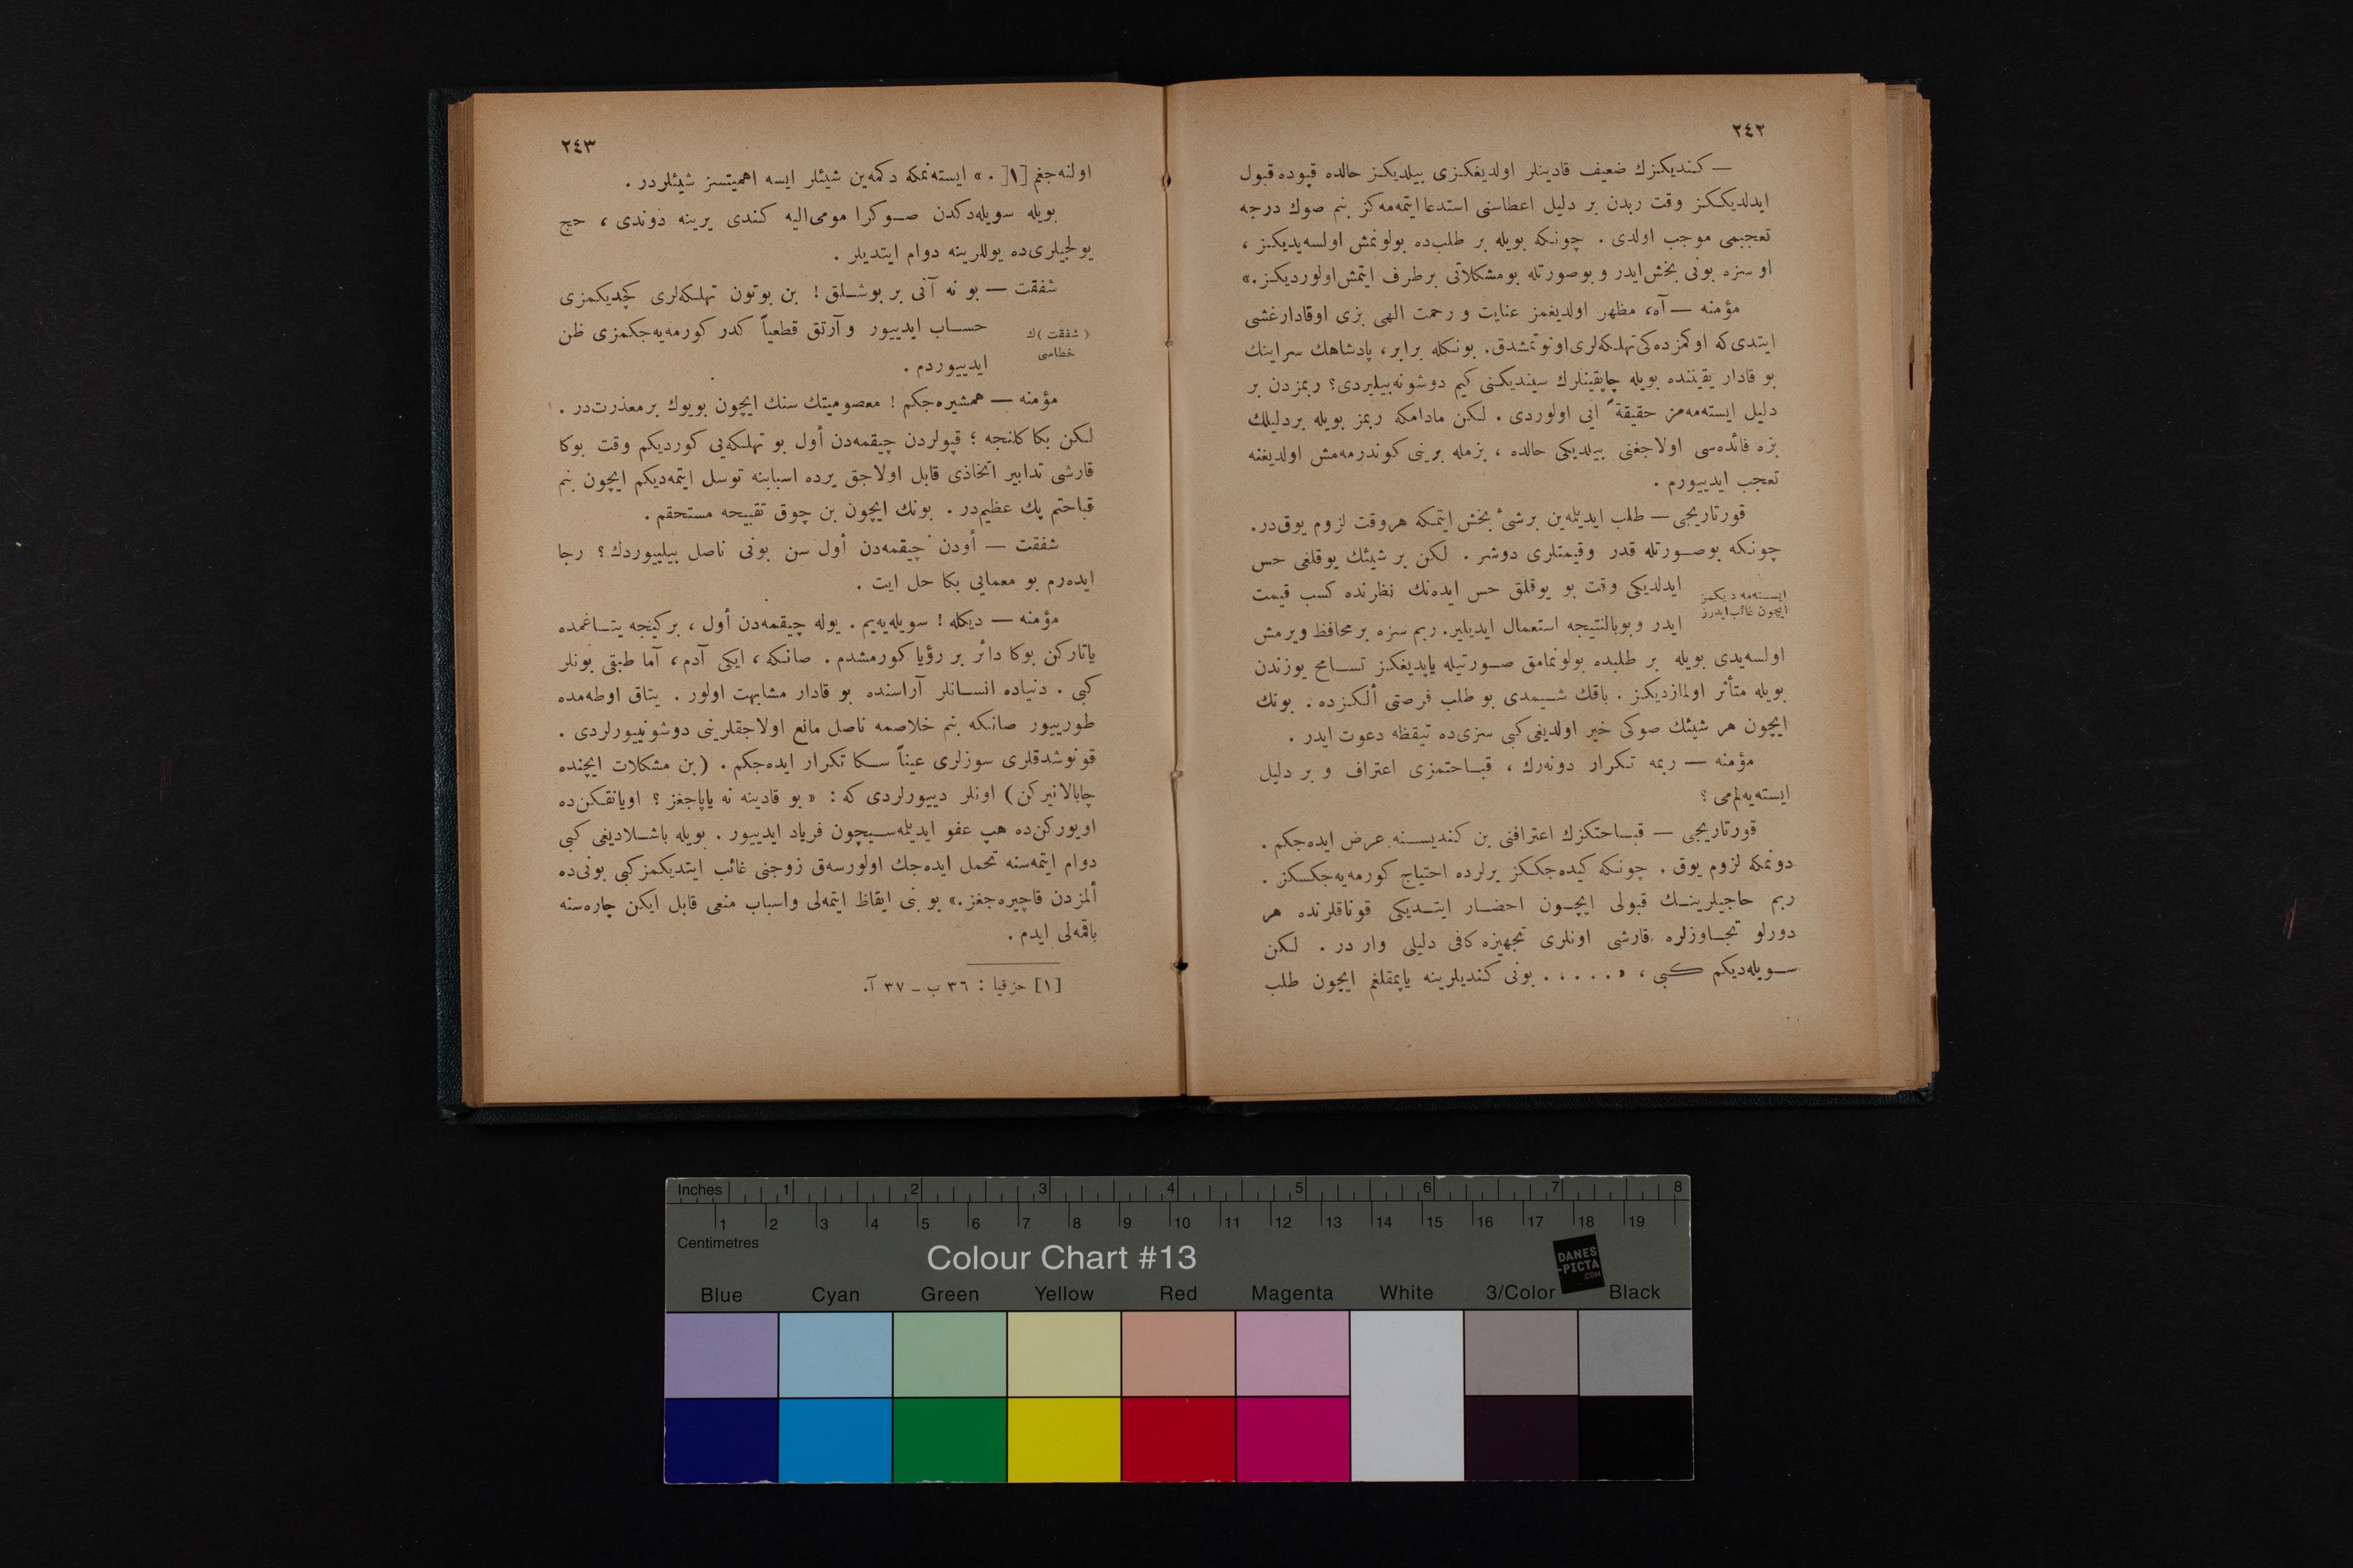 ٢٤٢
— كنديكزك ضعيف قادينلر اولديغكزى بيلديكز حالده قپوده قبول
ايدلديككز وقت ربدن بر دليل اعطاسنى استدعا ايتمه‌مه‌كز بنم صوك درجه
تعجبمى موجب اولدى . چونكه بويله بر طلب‌ده بولونمش اولسه‌يديكز ،
او سزه بونى بخش‌ايدر و بوصورتله بومشكلاتى برطرف ايتمش‌اولورديكز.»
مؤمنه — آه، مظهر اولديغمز عنايت و رحمت الهى بزى اوقادار غشى
ايتدى كه اوكمزده‌كى تهلكه‌لرى اونوتمشدق. بونكله برابر، پادشاهك سراينك
بو قادار يقيننده بويله چاپقينلرك سينديكنى كيم دوشونه بيليردى؟ ربمزدن بر
دليل ايسته‌مه‌مز حقيقةً ايى اولوردى . لكن مادامكه ربمز بويله بردليلك
بزه فائده‌سى اولاجغنى بيلديكى حالده ، بزمله برينى كوندرمه‌مش اولديغنه
تعجب ايدييورم .
قورتاريجى — طلب ايديلمه‌ين برشىٔ بخش ايتمكه هروقت لزوم يوق‌در.
چونكه بوصورتله قدر وقيمتلرى دوشر . لكن بر شيئك يوقلغى حس
ايسته‌مه ديكمز
ايچون غائب ايدرز
ايدلديكى وقت بو يوقلق حس ايده‌نك نظرنده كسب قيمت
ايدر وبوبالنتيجه استعمال ايديلير. ربم سزه برمحافظ ويرمش
اولسه‌يدى بويله بر طلبده بولونمامق صورتيله ياپديغكز تسامح يوزندن
بويله متأثر اولمازديكز . باقك شيمدى بو طلب فرصتى ألكزده . بونك
ايچون هر شيئك صوكى خير اولديغى كبى سزى‌ده تيقظه دعوت ايدر .
مؤمنه — ربمه تكرار دونه‌رك ، قباحتمزى اعتراف و بر دليل
ايسته‌يه‌لم‌مى ؟
قورتاريجى — قباحتكزك اعترافنى بن كنديسنه عرض ايده‌جكم .
دونمكه لزوم يوق . چونكه كيده‌جككز يرلرده احتياج كورمه‌يه‌جكسكز .
ربم حاجيلرينك قبولى ايچون احضار ايتديكى قوناقلرنده هر
دورلو تجاوزلره قارشى اونلرى تجهيزه كافى دليلى وار در . لكن
سويله‌ديكم كبى ، « . . . . . بونى كنديلرينه ياپمقلغم ايچون طلب
٢٤٣
اولنه‌جغم [١] . » ايسته‌نمكه دكمه‌ين شيئلر ايسه اهميتسز شيئلردر .
بويله سويله‌دكدن صوكرا مومى‌اليه كندى يرينه دوندى ، حج
يولجيلرى‌ده يوللرينه دوام ايتديلر .
شفقت — بو نه آنى بر بوشلق ! بن بوتون تهلكه‌لرى كچديكمزى
( شفقت )ك
خطاسى
حساب ايدييور وآرتق قطعياً كدر كورمه‌يه‌جكمزى ظن
ايدييوردم .
مؤمنه — همشيره‌جكم ! معصوميتك سنك ايچون بويوك برمعذرت‌در .
لكن بكا كلنجه ؛ قپولردن چيقمه‌دن أول بو تهلكه‌يى كورديكم وقت بوكا
قارشى تدابير اتخاذى قابل اولاجق يرده اسبابنه توسل ايتمه‌ديكم ايچون بنم
قباحتم پك عظيم‌در . بونك ايچون بن چوق تقبيحه مستحقم .
شفقت — أودن چيقمه‌دن أول سن بونى ناصل بيلييوردك ؟ رجا
ايده‌رم بو معمايى بكا حل ايت .
مؤمنه — ديكله ! سويله‌يه‌يم . يوله چيقمه‌دن أول ، بركيجه يتاغمده
ياتاركن بوكا دائر بر رؤيا كورمشدم . صانكه ، ايكى آدم ، آما طبقى بونلر
كبى . دنياده انسانلر آراسنده بو قادار مشابهت اولور . يتاق اوطه‌مده
طورييور صانكه بنم خلاصمه ناصل مانع اولاجقلرينى دوشونييورلردى .
قونوشدقلرى سوزلرى عيناً سكا تكرار ايده‌جكم . (بن مشكلات ايچنده
چابالانيركن) اونلر دييورلردى كه : « بو قادينه نه ياپاجغز ؟ اويانقكن‌ده
اويوركن‌ده هپ عفو ايديلمه‌سيچون فرياد ايدييور . بويله باشلاديغى كبى
دوام ايتمه‌سنه تحمل ايده‌جك اولورسه‌ق زوجنى غائب ايتديكمز كبى بونى‌ده
ألمزدن قاچيره‌جغز.» بو بنى ايقاظ ايتمه‌لى واسباب منعى قابل ايكن چاره‌سنه
باقمه‌لى ايدم .
[١] حزقيا : ٣٦ ب ـ ٣٧ آ.
Inches 1 2 3 4 5 6 7 8
1 2 3 4 5 6 7 8 9 10 11 12 13 14 15 16 17 18 19
Centimetres
Colour Chart #13
DANES
-PICTA
.COM
Blue Cyan Green Yellow Red Magenta White 3/Color Black